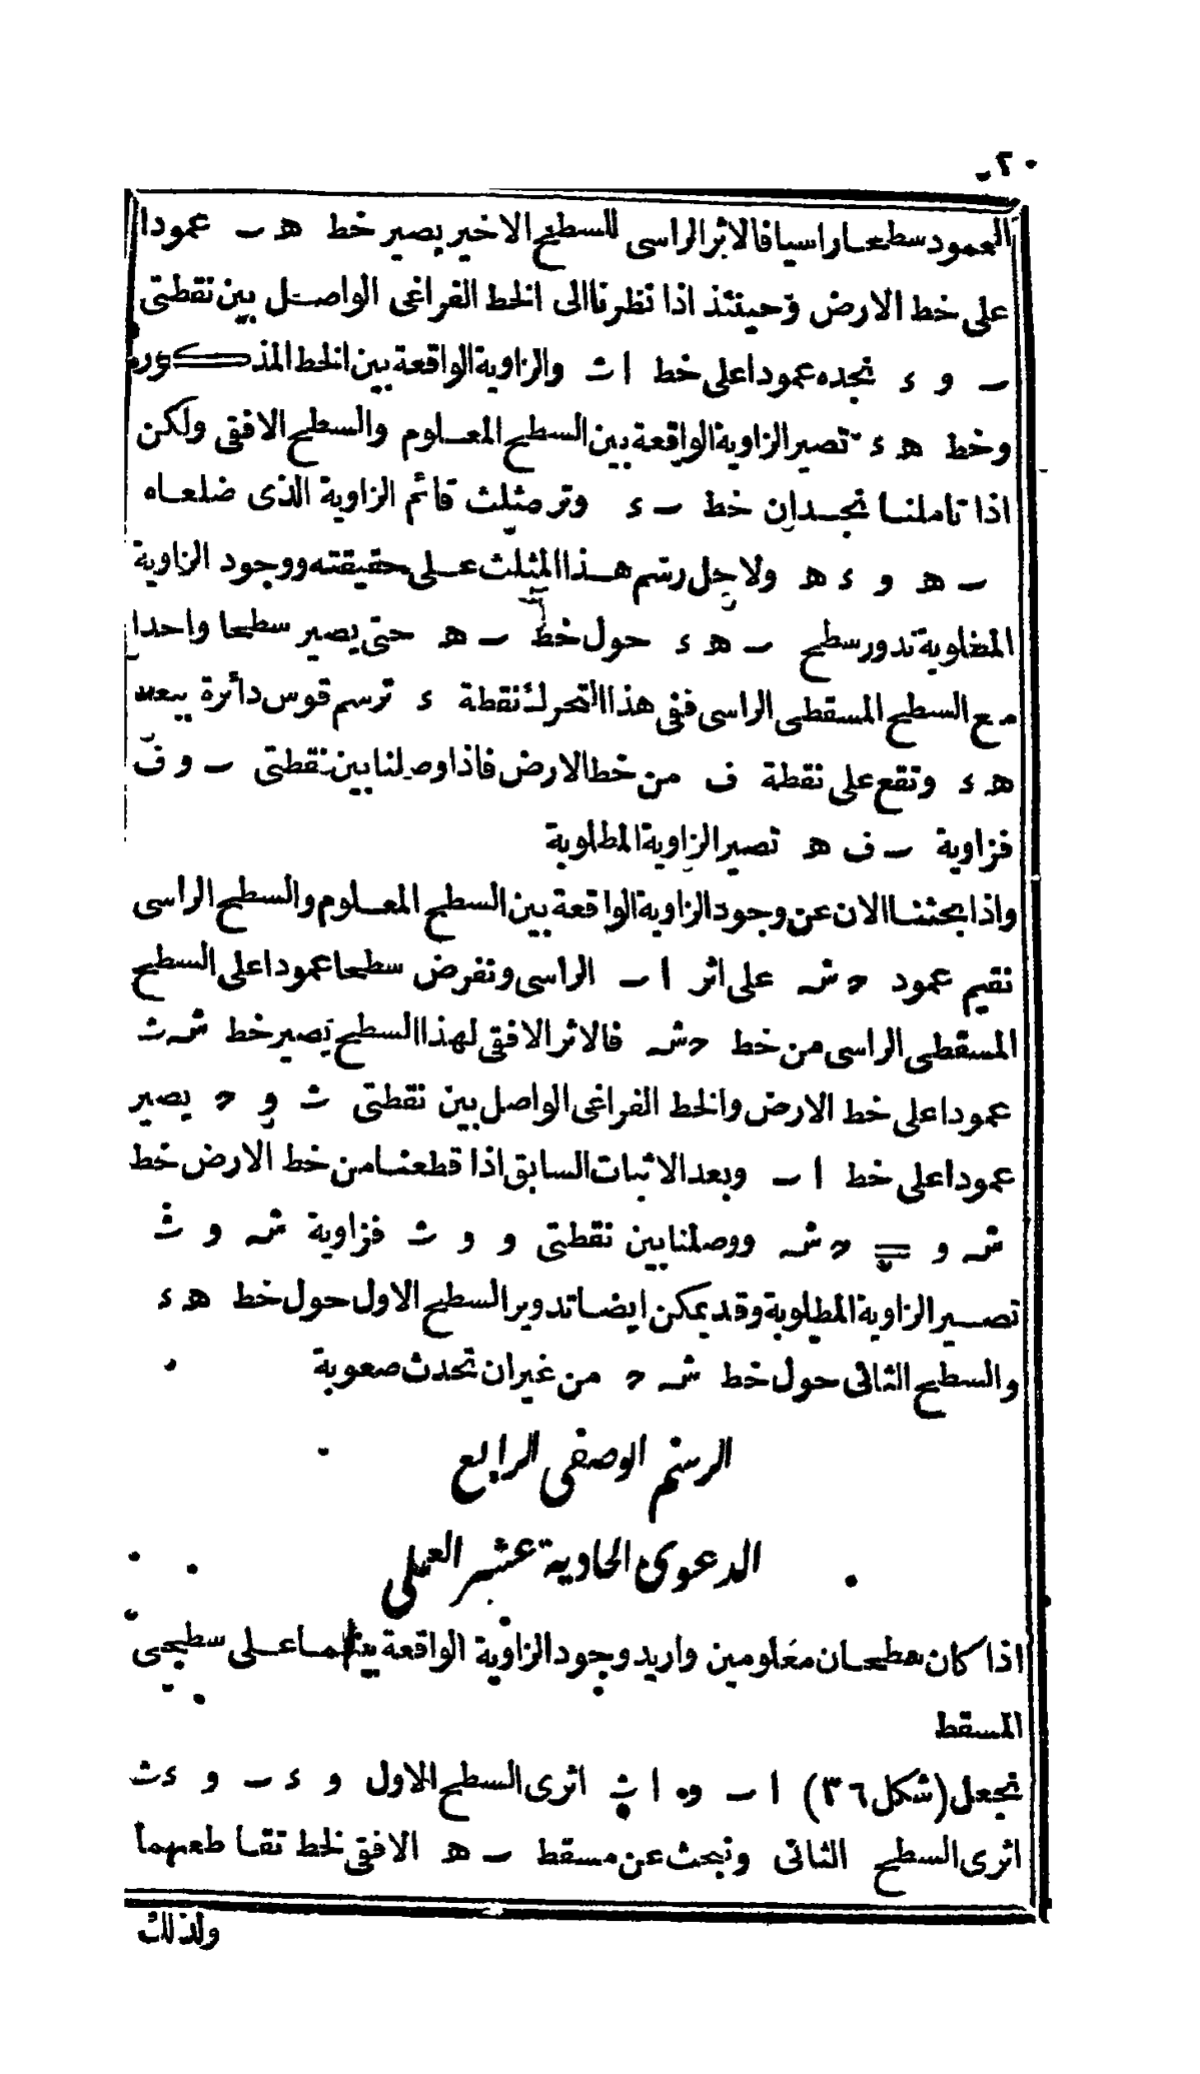 ٢٠
العمود سطحا راسيا فالاثر الراسى للسطح الاخير يصير خط هـ ب عمودا
على خط الارض وحينئذ اذا نظرنا الى الخط الفراغى الواصل بين نقطتى
ب و ء نجده عمودا على خط ا ث والزاوية الواقعة بين الخط المذكور
وخط هـ ء تصير الزاوية الواقعة بين السطح المعلوم والسطح الافقى ولكن
اذا تاملنا نجد ان خط ب ء وتر مثلث قائم الزاوية الذى ضلعاه
ب هـ و ء هـ ولاجل رسم هذا المثلث على حقيقته ووجود الزاوية
المطلوبة ندور سطح ب هـ ء حول خط ب هـ حتى يصير سطحا واحدا
مع السطح المسقطى الراسى ففى هذا التحرك نقطة ء ترسم قوس دائرة ببعد
هـ ء وتقع على نقطة ف من خط الارض فاذا وصلنا بين نقطتى ب و ف
فزاوية ب ف هـ تصير الزاوية المطلوبة
واذا بحثنا الان عن وجود الزاوية الواقعة بين السطح المعلوم والسطح الراسى
نقيم عمود ح ش على اثر ا ب الراسى ونفرض سطحا عمودا على السطح
المسقطى الراسى من خط ح ش فالاثر الافقى لهذا السطح يصير خط ش ث
عمودا على خط الارض والخط الفراغى الواصل بين نقطتى ث و ح يصير
عمودا على خط ا ب وبعد الاثبات السابق اذا قطعنا من خط الارض خط
ش و = ح ش ووصلنا بين نقطتى و و ث فزاوية ش و ث
تصير الزاوية المطلوبة وقد يمكن ايضا تدوير السطح الاول حول خط هـ ء
والسطح الثانى حول خط ش ح من غير ان تحدث صعوبة
الرسم الوصفى الرابع
الدعوى الحادية عشر العملى
اذا كان سطحان معلومين واريد وجود الزاوية الواقعة بينهما على سطحى
المسقط
نجعل (شكل ٣٦) ا ب و ا ث اثرى السطح الاول و ء ب و ء ث
اثرى السطح الثانى ونبحث عن مسقط ب هـ الافقى لخط تقاطعهما
ولذلك